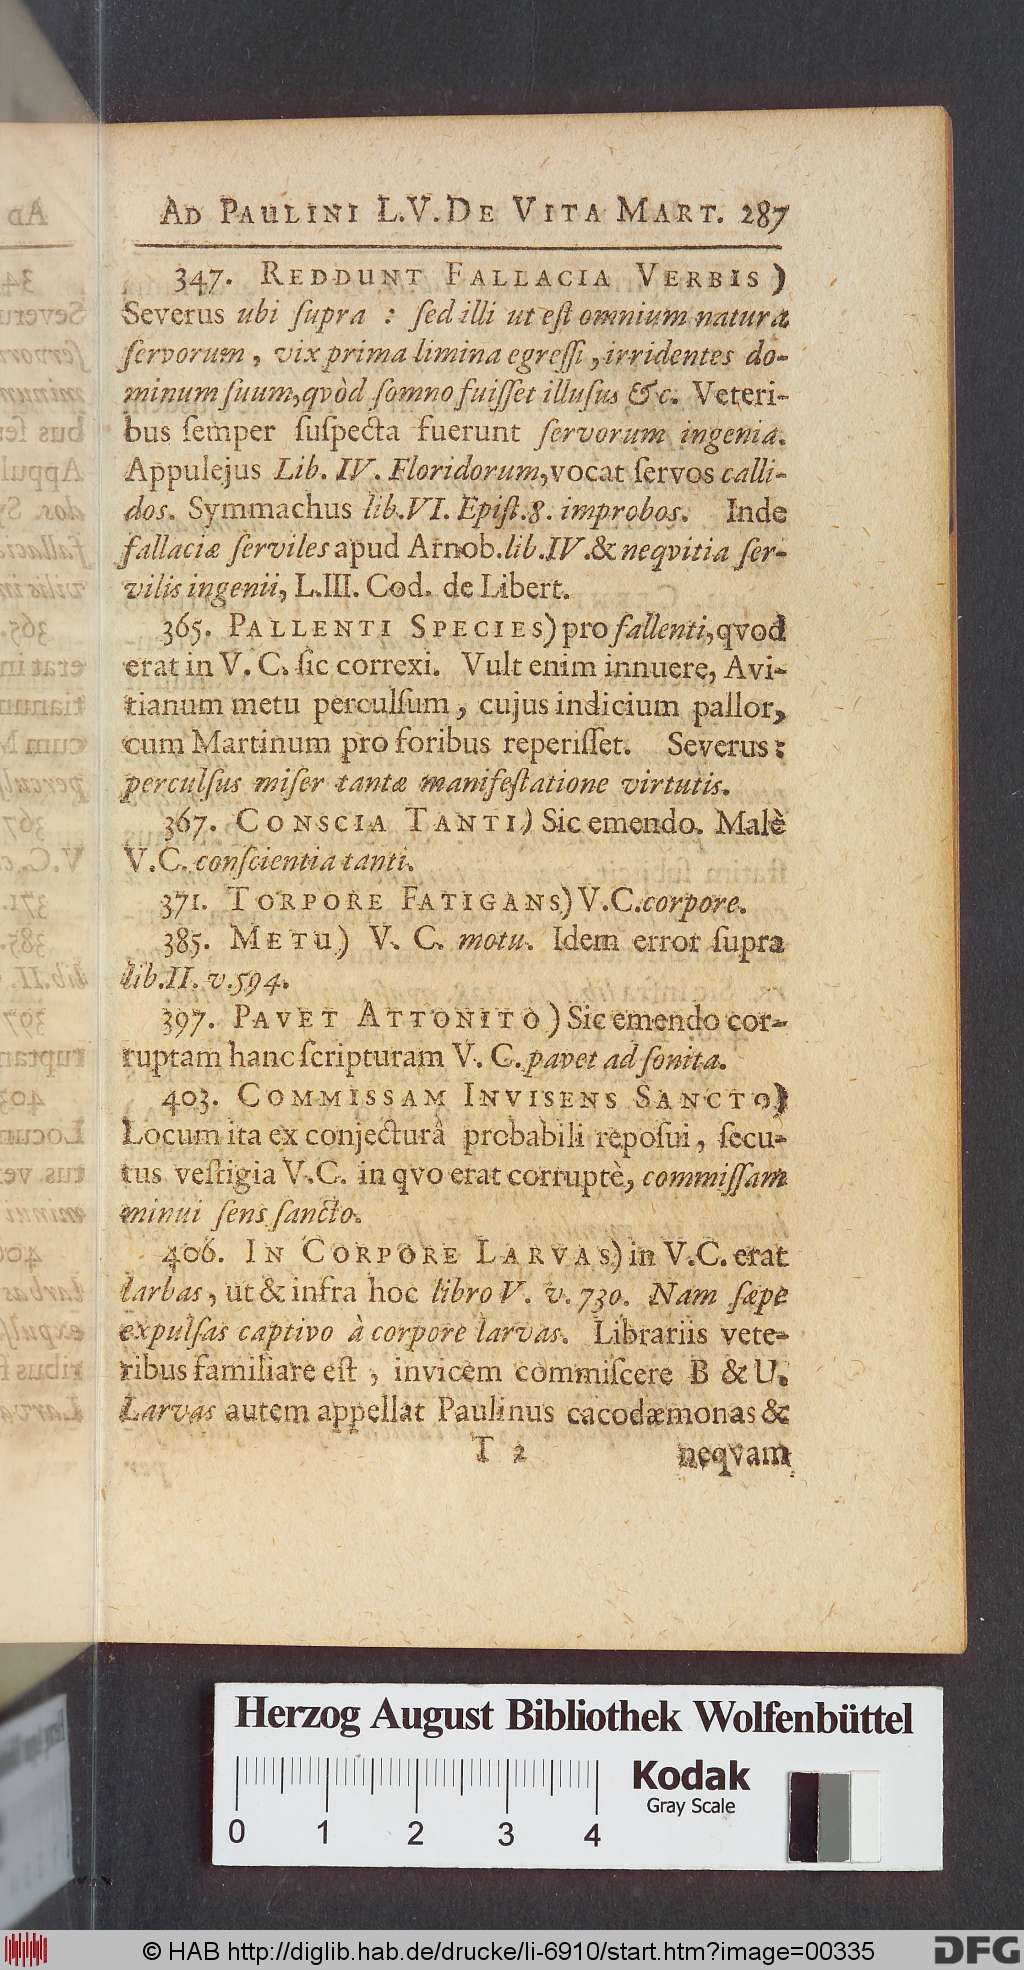 AD PAULINI L.V. DE VITA MART. 287
347. REDDUNT FALLACIA VERBIS)
Severus ubi ſupra : ſed illi ut eſt omnium natura
ſervorum, vix prima limina egreſſi, irridentes do-
minum ſuum, qvòd ſomno fuiſſet illuſus &c. Veteri-
bus ſemper ſuſpecta fuerunt ſervorum ingenia.
Appulejus Lib. IV. Floridorum, vocat ſervos calli-
dos. Symmachus lib. VI. Epiſt. 8. improbos. Inde
fallaciæ ſerviles apud Arnob. lib. IV. & neqvitia ſer-
vilis ingenii, L. III. Cod. de Libert.
365. PALLENTI SPECIES) pro fallenti, qvod
erat in V. C. ſic correxi. Vult enim innuere, Avi-
tianum metu perculſum, cujus indicium pallor,
cum Martinum pro foribus reperiſſet. Severus:
perculſus miſer tantæ manifeſtatione virtutis.
367. CONSCIA TANTI) Sic emendo. Malè
V. C. conſcientia tanti.
371. TORPORE FATIGANS) V. C. corpore.
385. METU) V. C. motu. Idem error ſupra
lib. II. v. 594.
397. PAVET ATTONITO) Sic emendo cor-
ruptam hanc ſcripturam V. C. pavet ad ſonita.
403. COMMISSAM INVISENS SANCTO)
Locum ita ex conjecturâ probabili repoſui, ſecu-
tus veſtigia V. C. in qvo erat corruptè, commiſſam
minui ſens ſancto.
406. IN CORPORE LARVAS) in V.C. erat
larbas, ut & infra hoc libro V. v. 730. Nam ſæpe
expulſas captivo à corpore larvas. Librariis vete-
ribus familiare eſt, invicem commiſcere B & U.
Larvas autem appellat Paulinus cacodæmonas &
T 2 neqvam
Herzog August Bibliothek Wolfenbüttel
Kodak
Gray Scale
0 1 2 3 4
© HAB http://diglib.hab.de/drucke/li-6910/start.htm?image=00335
DFG